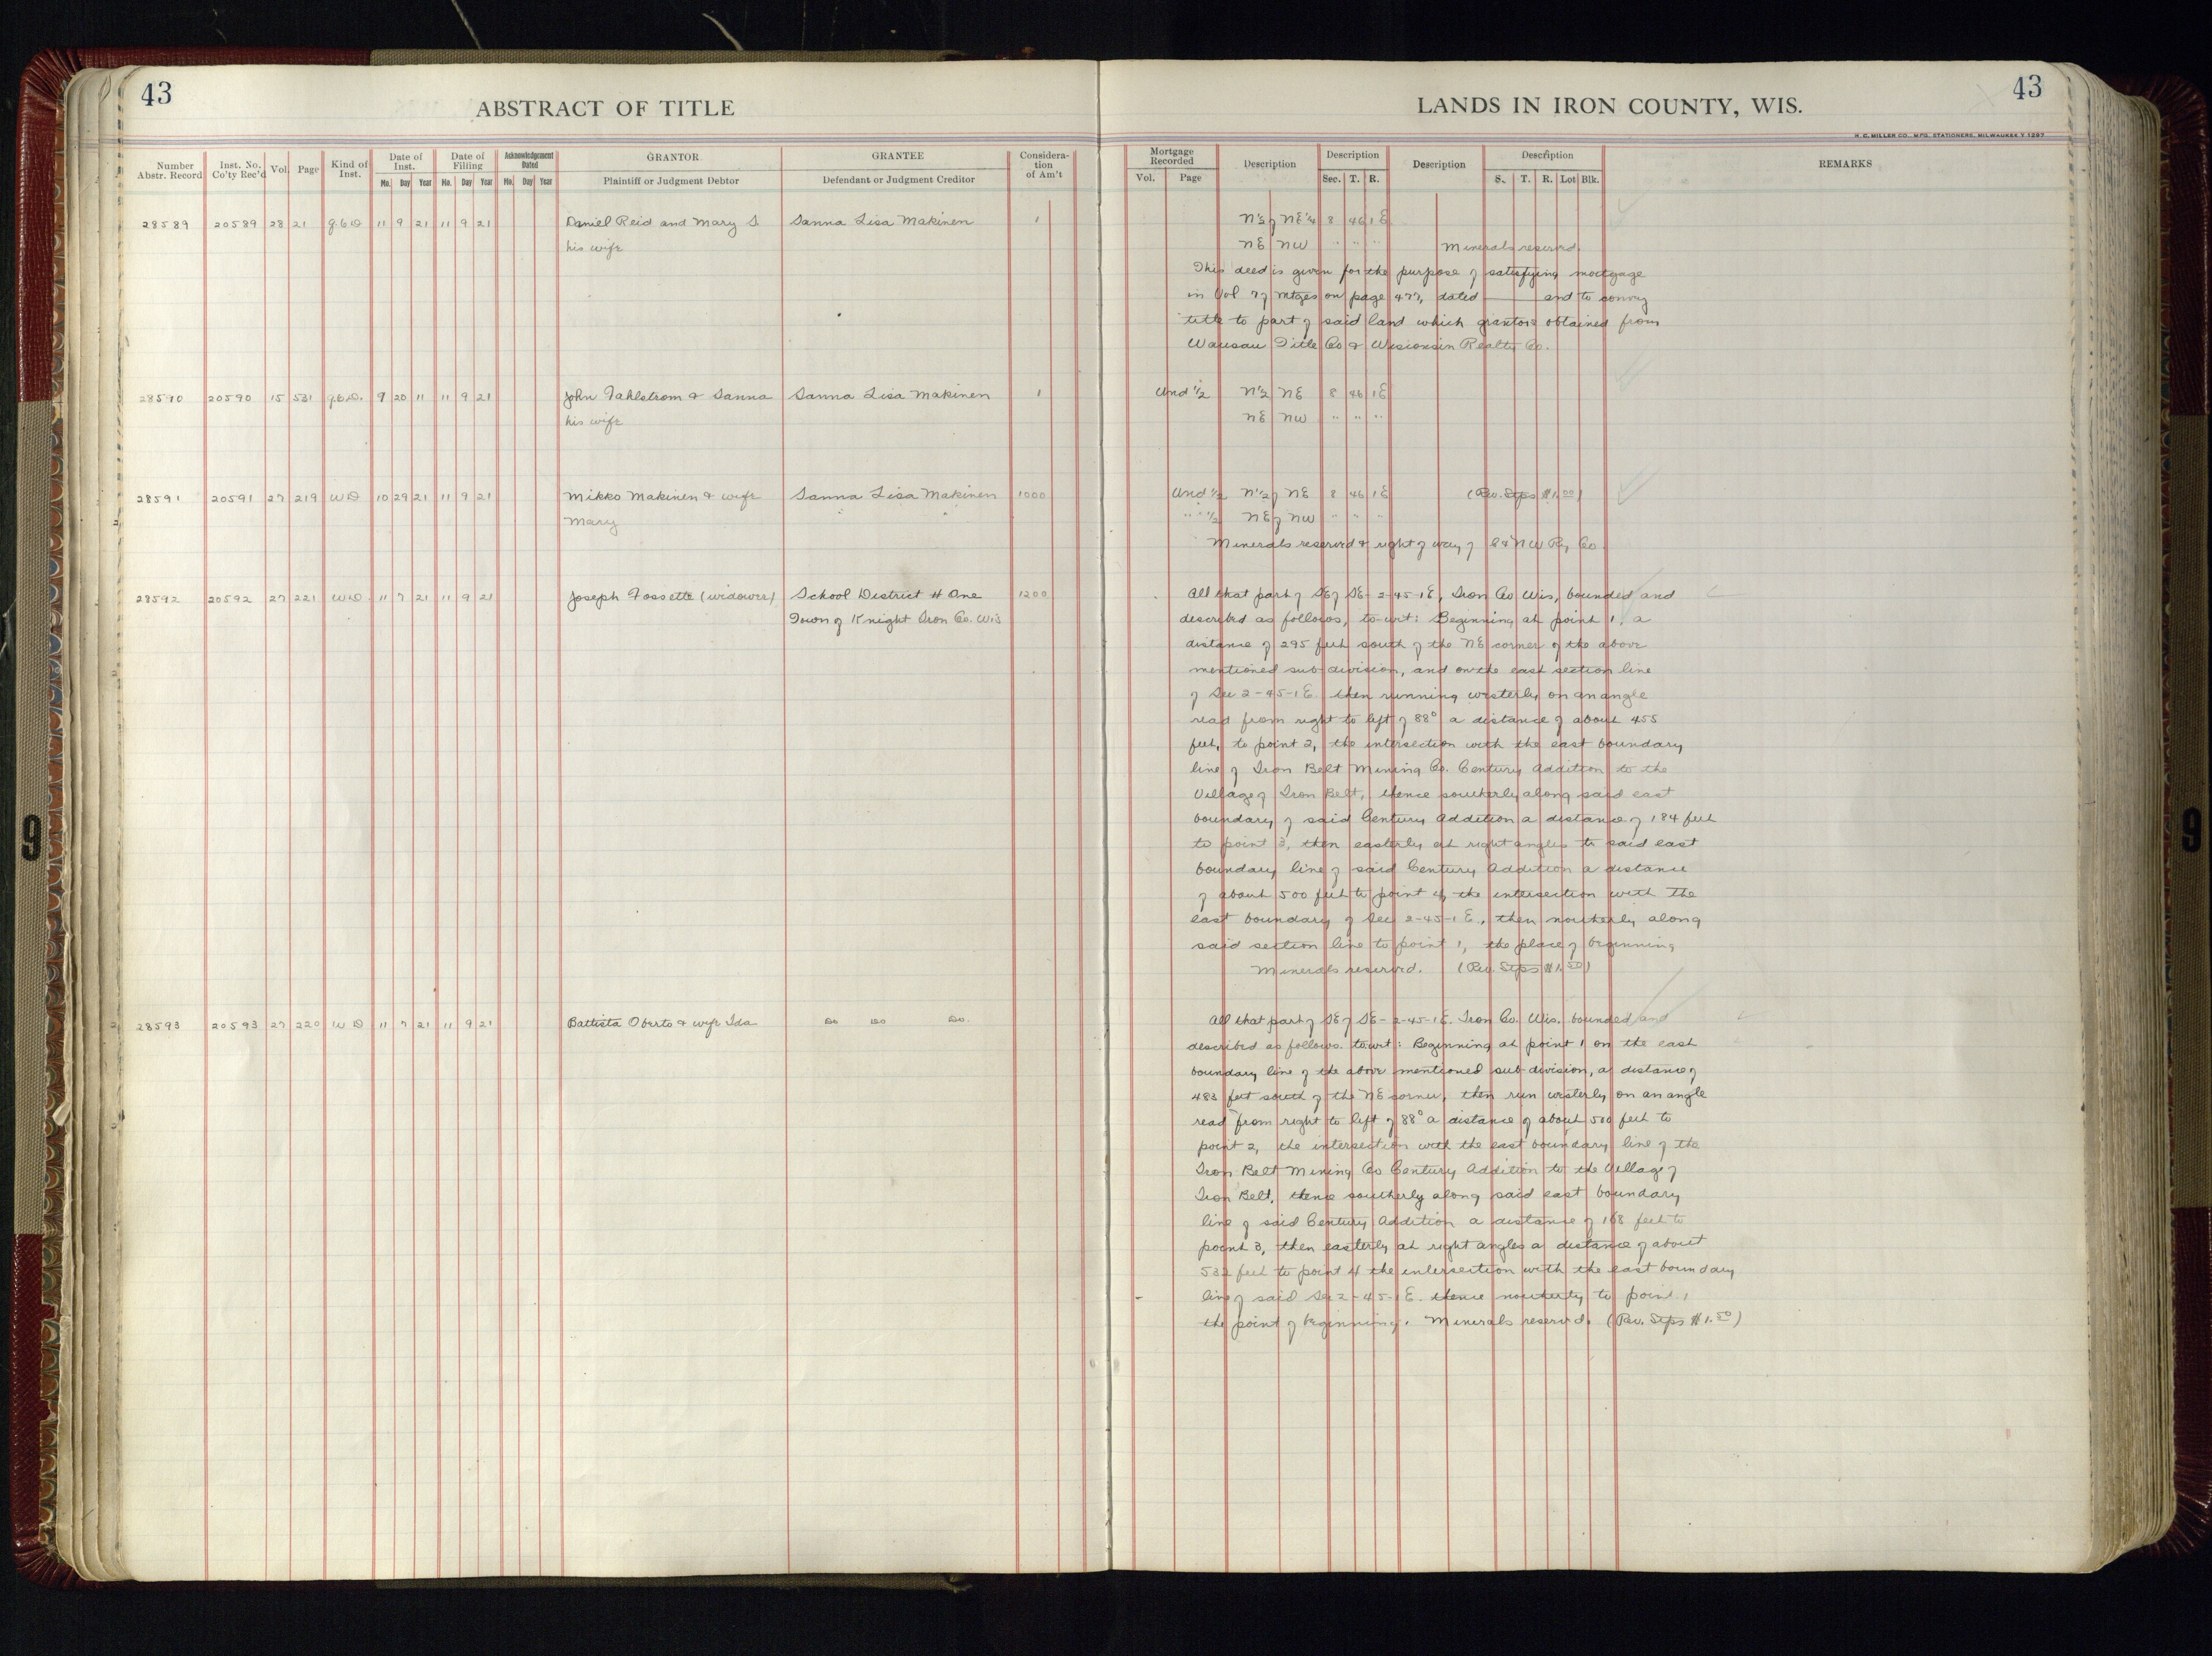 43
ABSTRACT OF TITLE
Number Abstr. Record
Inst. No. Co'ty Rec'd
Vol.
Page
Kind of Inst.
Date of Inst.
Mo. Day Year
Date of Filling
Mo. Day Year
Acknowledgement Dated
Mo. Day Year
GRANTOR
Plaintiff or Judgment Debtor
GRANTEE
Defendant or Judgment Creditor
Considera-tion of Am't
28589 20589 28 21 Q.C.D 11 9 21 11 9 21 Daniel Reid and Mary S. Sanna Lisa Makinen 1
his wife
28590 20590 15 531 Q.C.D. 9 20 11 11 9 21 John Fahlstrom & Sanna Sanna Lisa Makinen 1
his wife
28591 20591 27 219 WD 10 29 21 11 9 21 Mikko Makinen & wife Sanna Lisa Makinen 1000
Mary
28592 20592 27 221 WD. 11 7 21 11 9 21 Joseph Fossette (widower) School District # One 1200
Town of Knight Iron Co. Wis
28593 20593 27 220 WD 11 7 21 11 9 21 Battista Oberto & wife Ida Do Do Do.
43
LANDS IN IRON COUNTY, WIS.
H. C. MILLER CO. MFG. STATIONERS, MILWAUKEE
Mortgage Recorded
Vol. Page
Description
Description
Sec. T. R.
Description
Description
S. T. R. Lot Blk.
REMARKS
N½ of NE¼ 8 46 1E
NE NW " " " Minerals reserved.
This deed is given for the purpose of satisfying mortgage
in Vol 7 of Mtges on page 477, dated ——— and to convey
title to part of said land which grantors obtained from
Wausau Title Co & Wisconsin Realty Co.
Und ½ N½ NE 8 46 1E
NE NW " " "
Und ½ N½ of NE 8 46 1E (Rev. Stps $1.00)
" " ½ NE of NW " " "
Minerals reserved & right of way of C & N W Ry Co.
All that part of SE of SE - 2-45-1E, Iron Co Wis, bounded and
described as follows, to-wit: Beginning at point 1, a
distance of 295 feet south of the NE corner of the above
mentioned sub-division, and on the east section line
of Sec 2-45-1E. then running westerly on an angle
read from right to left of 88° a distance of about 455
feet, to point 2, the intersection with the east boundary
line of Iron Belt Mining Co. Century Addition to the
Village of Iron Belt, thence southerly along said east
boundary of said Century Addition a distance of 184 feet
to point 3, then easterly at right angles to said east
boundary line of said Century Addition a distance
of about 500 feet to point 4, the intersection with the
east boundary of Sec 2-45-1E., then northerly along
said section line to point 1, the place of beginning
Minerals reserved. (Rev. Stps $1.50)
All that part of SE of SE - 2-45-1E. Iron Co. Wis. bounded and
described as follows. to wit: Beginning at point 1 on the east
boundary line of the above mentioned sub-division, a distance of
483 feet south of the NE corner, then run westerly on an angle
read from right to left of 88° a distance of about 500 feet to
point 2, the intersection with the east boundary line of the
Iron Belt Mining Co Century Addition to the Village of
Iron Belt, thence southerly along said east boundary
line of said Century Addition a distance of 168 feet to
point 3, then easterly at right angles a distance of about
532 feet to point 4 the intersection with the east boundary
line of said Sec 2-45-1E. thence northerly to point 1
the point of beginning. Minerals reserved. (Rev. Stps $1.50)
9
9